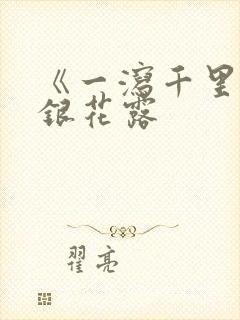 《一泻千里
银花露
翟亮